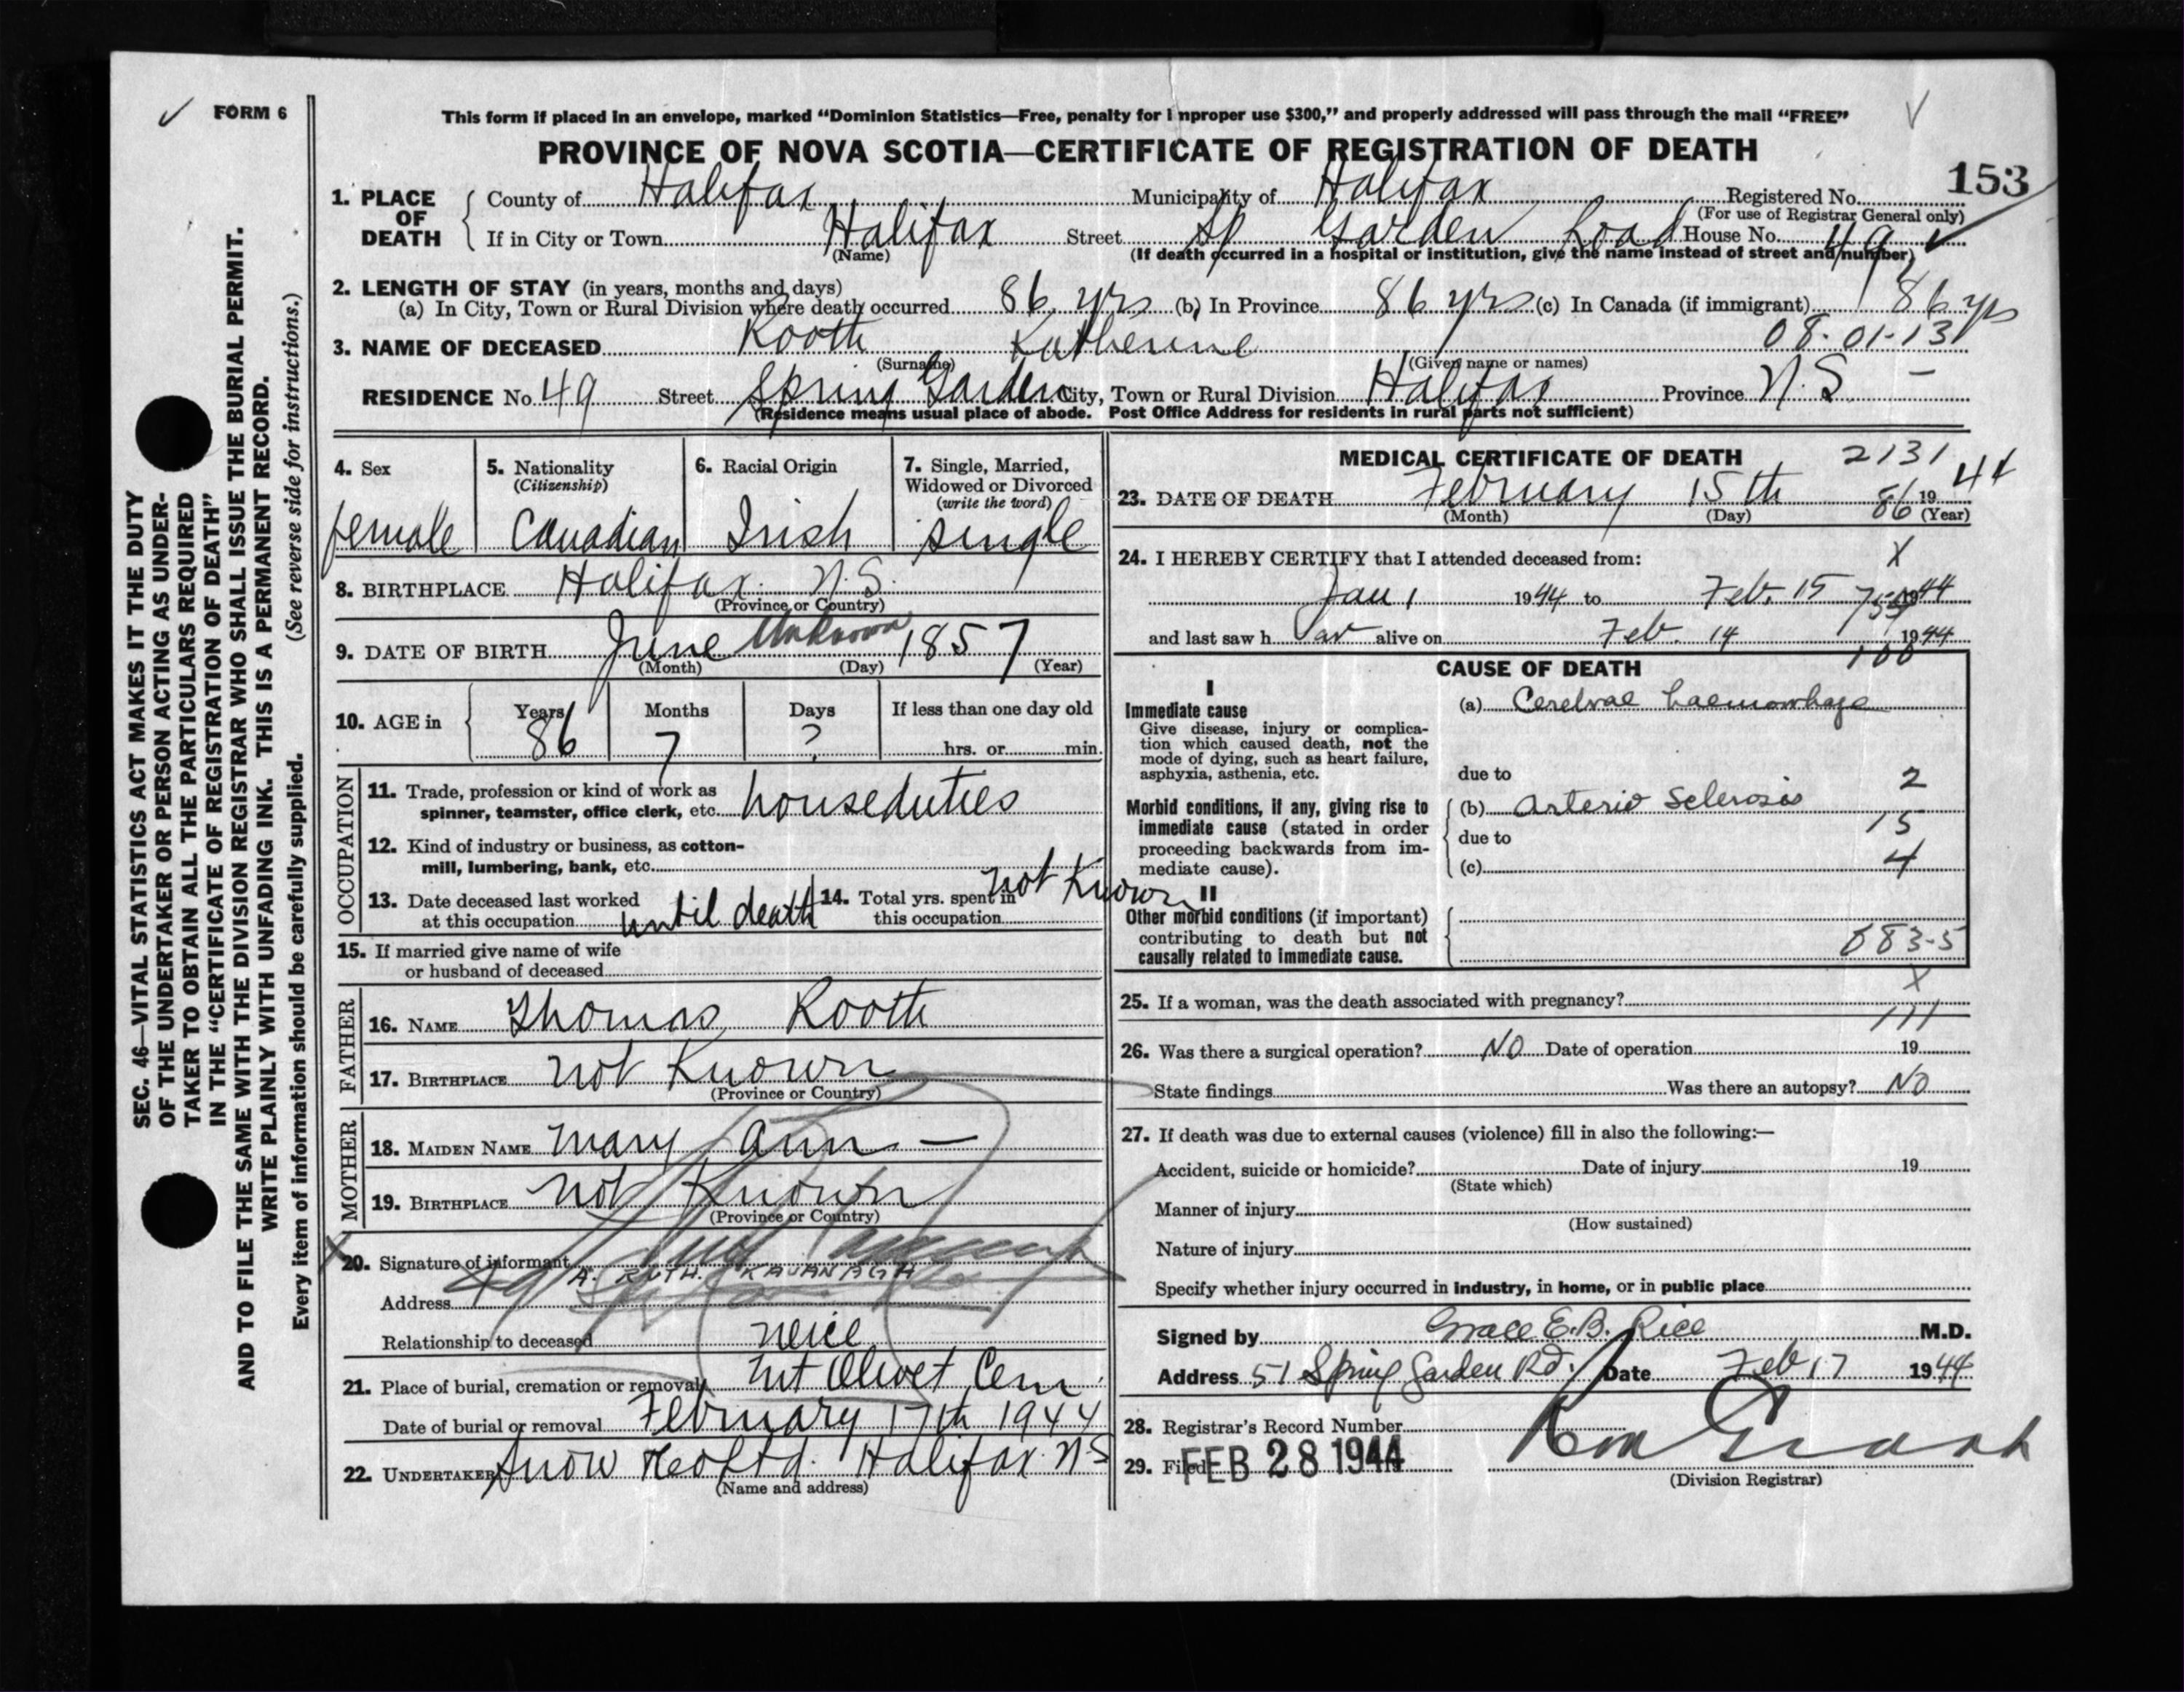 FORM 6
This form if placed in an envelope, marked “Dominion Statistics—Free, penalty for i nproper use $300,” and properly addressed will pass through the mail “FREE”
PROVINCE OF NOVA SCOTIA—CERTIFICATE OF REGISTRATION OF DEATH
153
1. PLACE OF DEATH
County of Halifax Municipality of Halifax Registered No.
(For use of Registrar General only)
If in City or Town Halifax Street Sp Garden Road House No. 49
(Name) (If death occurred in a hospital or institution, give the name instead of street and number)
2. LENGTH OF STAY (in years, months and days)
(a) In City, Town or Rural Division where death occurred 86 yrs (b) In Province 86 yrs (c) In Canada (if immigrant) 86 yrs
08-01-13
3. NAME OF DECEASED Rooth Katherine
(Surname) (Given name or names)
RESIDENCE No. 49 Street Spring Garden City, Town or Rural Division Halifax Province N.S. -
(Residence means usual place of abode. Post Office Address for residents in rural parts not sufficient)
4. Sex
female
5. Nationality
(Citizenship)
Canadian
6. Racial Origin
Irish
7. Single, Married,
Widowed or Divorced
(write the word)
single
8. BIRTHPLACE Halifax. N.S.
(Province or Country)
9. DATE OF BIRTH June Unknown 1857
(Month) (Day) (Year)
10. AGE in
Years Months Days If less than one day old
86 7 ? hrs. or min.
OCCUPATION
11. Trade, profession or kind of work as
spinner, teamster, office clerk, etc. houseduties
12. Kind of industry or business, as cotton-
mill, lumbering, bank, etc.
13. Date deceased last worked
at this occupation until death
14. Total yrs. spent in
this occupation not Known
15. If married give name of wife
or husband of deceased
FATHER
16. NAME Thomas Rooth
17. BIRTHPLACE not Known
(Province or Country)
MOTHER
18. MAIDEN NAME Mary Ann —
19. BIRTHPLACE not Known
(Province or Country)
X
20. Signature of informant
A. RUTH. KAVANAGH
Address 49
Relationship to deceased neice
21. Place of burial, cremation or removal Mt Olivet Cem.
Date of burial or removal February 17th 1944
22. UNDERTAKER Snow & Co Ltd. Halifax N S
(Name and address)
MEDICAL CERTIFICATE OF DEATH 2131
23. DATE OF DEATH February 15th 19 44
(Month) (Day) 86 (Year)
24. I HEREBY CERTIFY that I attended deceased from:
X
Jan 1 1944 to Feb. 15 1944
and last saw h er alive on Feb. 14 1944
100
CAUSE OF DEATH
I
Immediate cause
Give disease, injury or complica-
tion which caused death, not the
mode of dying, such as heart failure,
asphyxia, asthenia, etc.
(a) Cerebral haemorrhage
due to
2
Morbid conditions, if any, giving rise to
immediate cause (stated in order
proceeding backwards from im-
mediate cause).
(b) Arterio Sclerosis
15
due to
4
(c)
II
Other morbid conditions (if important)
contributing to death but not
causally related to immediate cause.
883-5
X
25. If a woman, was the death associated with pregnancy?
111
26. Was there a surgical operation? NO Date of operation 19
State findings Was there an autopsy? NO
27. If death was due to external causes (violence) fill in also the following:—
Accident, suicide or homicide? Date of injury 19
(State which)
Manner of injury
(How sustained)
Nature of injury
Specify whether injury occurred in industry, in home, or in public place
Signed by Grace E.B. Rice M.D.
Address 51 Spring Garden Rd. Date Feb 17 1944
28. Registrar’s Record Number
29. Filed FEB 28 1944
(Division Registrar)
SEC. 46—VITAL STATISTICS ACT MAKES IT THE DUTY
OF THE UNDERTAKER OR PERSON ACTING AS UNDER-
TAKER TO OBTAIN ALL THE PARTICULARS REQUIRED
IN THE “CERTIFICATE OF REGISTRATION OF DEATH”
AND TO FILE THE SAME WITH THE DIVISION REGISTRAR WHO SHALL ISSUE THE BURIAL PERMIT.
WRITE PLAINLY WITH UNFADING INK. THIS IS A PERMANENT RECORD.
Every item of information should be carefully supplied. (See reverse side for instructions.)